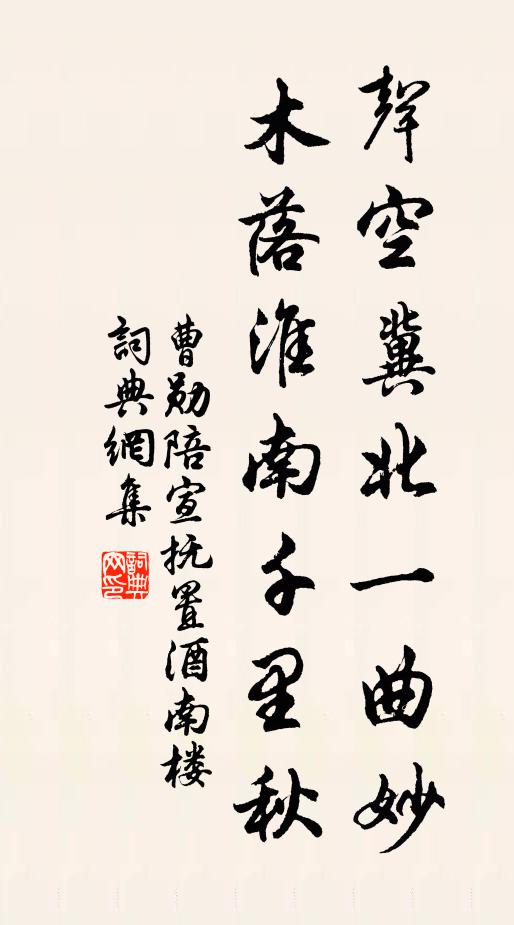 聲空冀北一曲妙
木落淮南千里秋
曹勋陪宣抚置酒南楼
詞典網集
詞典网印